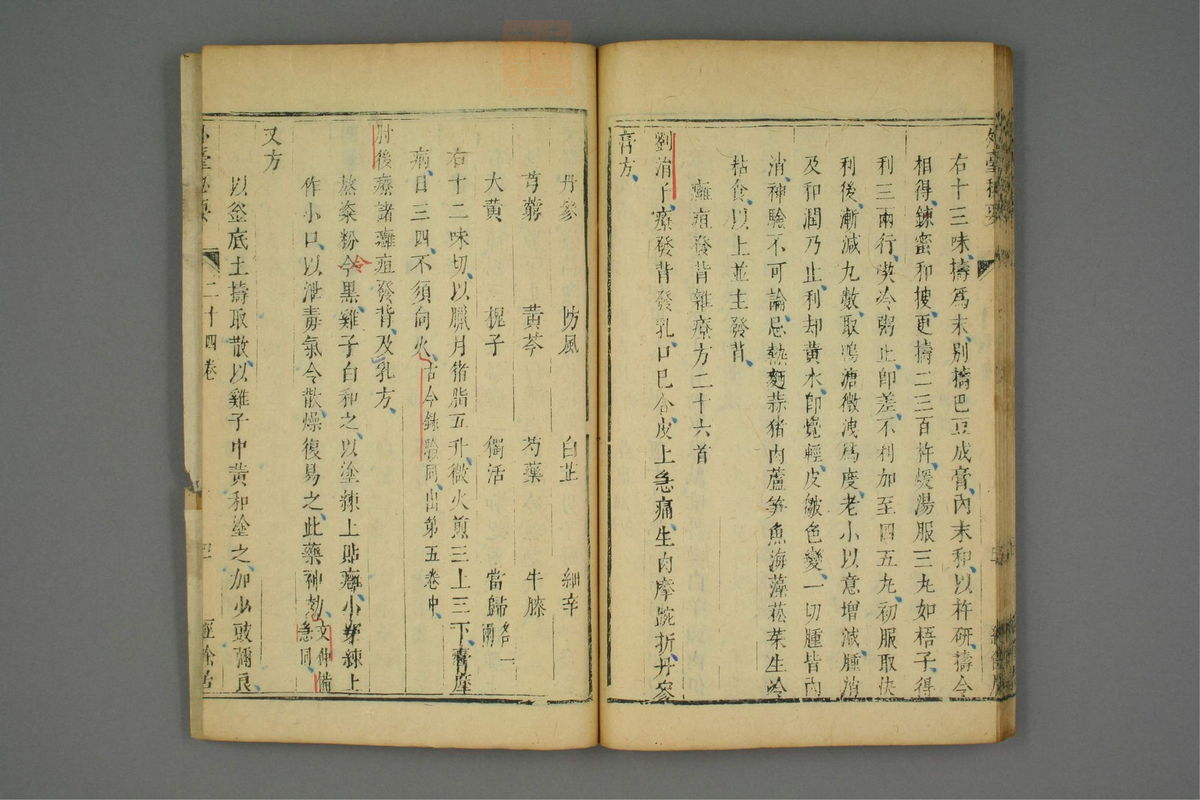 右十三味擣為末別擣巴豆成膏內末和以杵研擣令
相得鍊蜜和擣更擣二三百杵煖湯服三丸如梧子得
利三兩行喫冷粥止即差不利加至四五丸初服取快
利後漸減丸數取鴨溏微洩為度老小以意增減腫消
及和潤乃止利却黃水即覺輕皮皺色變一切腫皆內
消神驗不可論忌熱麪蒜猪肉蘆笋魚海藻菘菜生冷
粘食以上並主發背
癰疽發背雜療方二十六首
劉涓子療發背發乳口已合皮上急痛生肉摩踠折丹參
膏方
丹參 防風 白芷 細辛
芎藭 黃芩 芍藥 牛膝
大黃 槐子 獨活 當歸各一兩
右十二味切以臘月猪脂五升微火煎三上三下膏摩
病日三四不須向火古今錄驗同出第五卷中
肘後療諸癰疽發背及乳方
熬粢粉令黑雞子白和之以塗練上貼癰小穿練上
作小口以泄毒氣令散燥復易之此藥神効文仲備急同
又方
以釜底土擣取散以雞子中黃和塗之加少豉彌良
二十四卷
經餘居